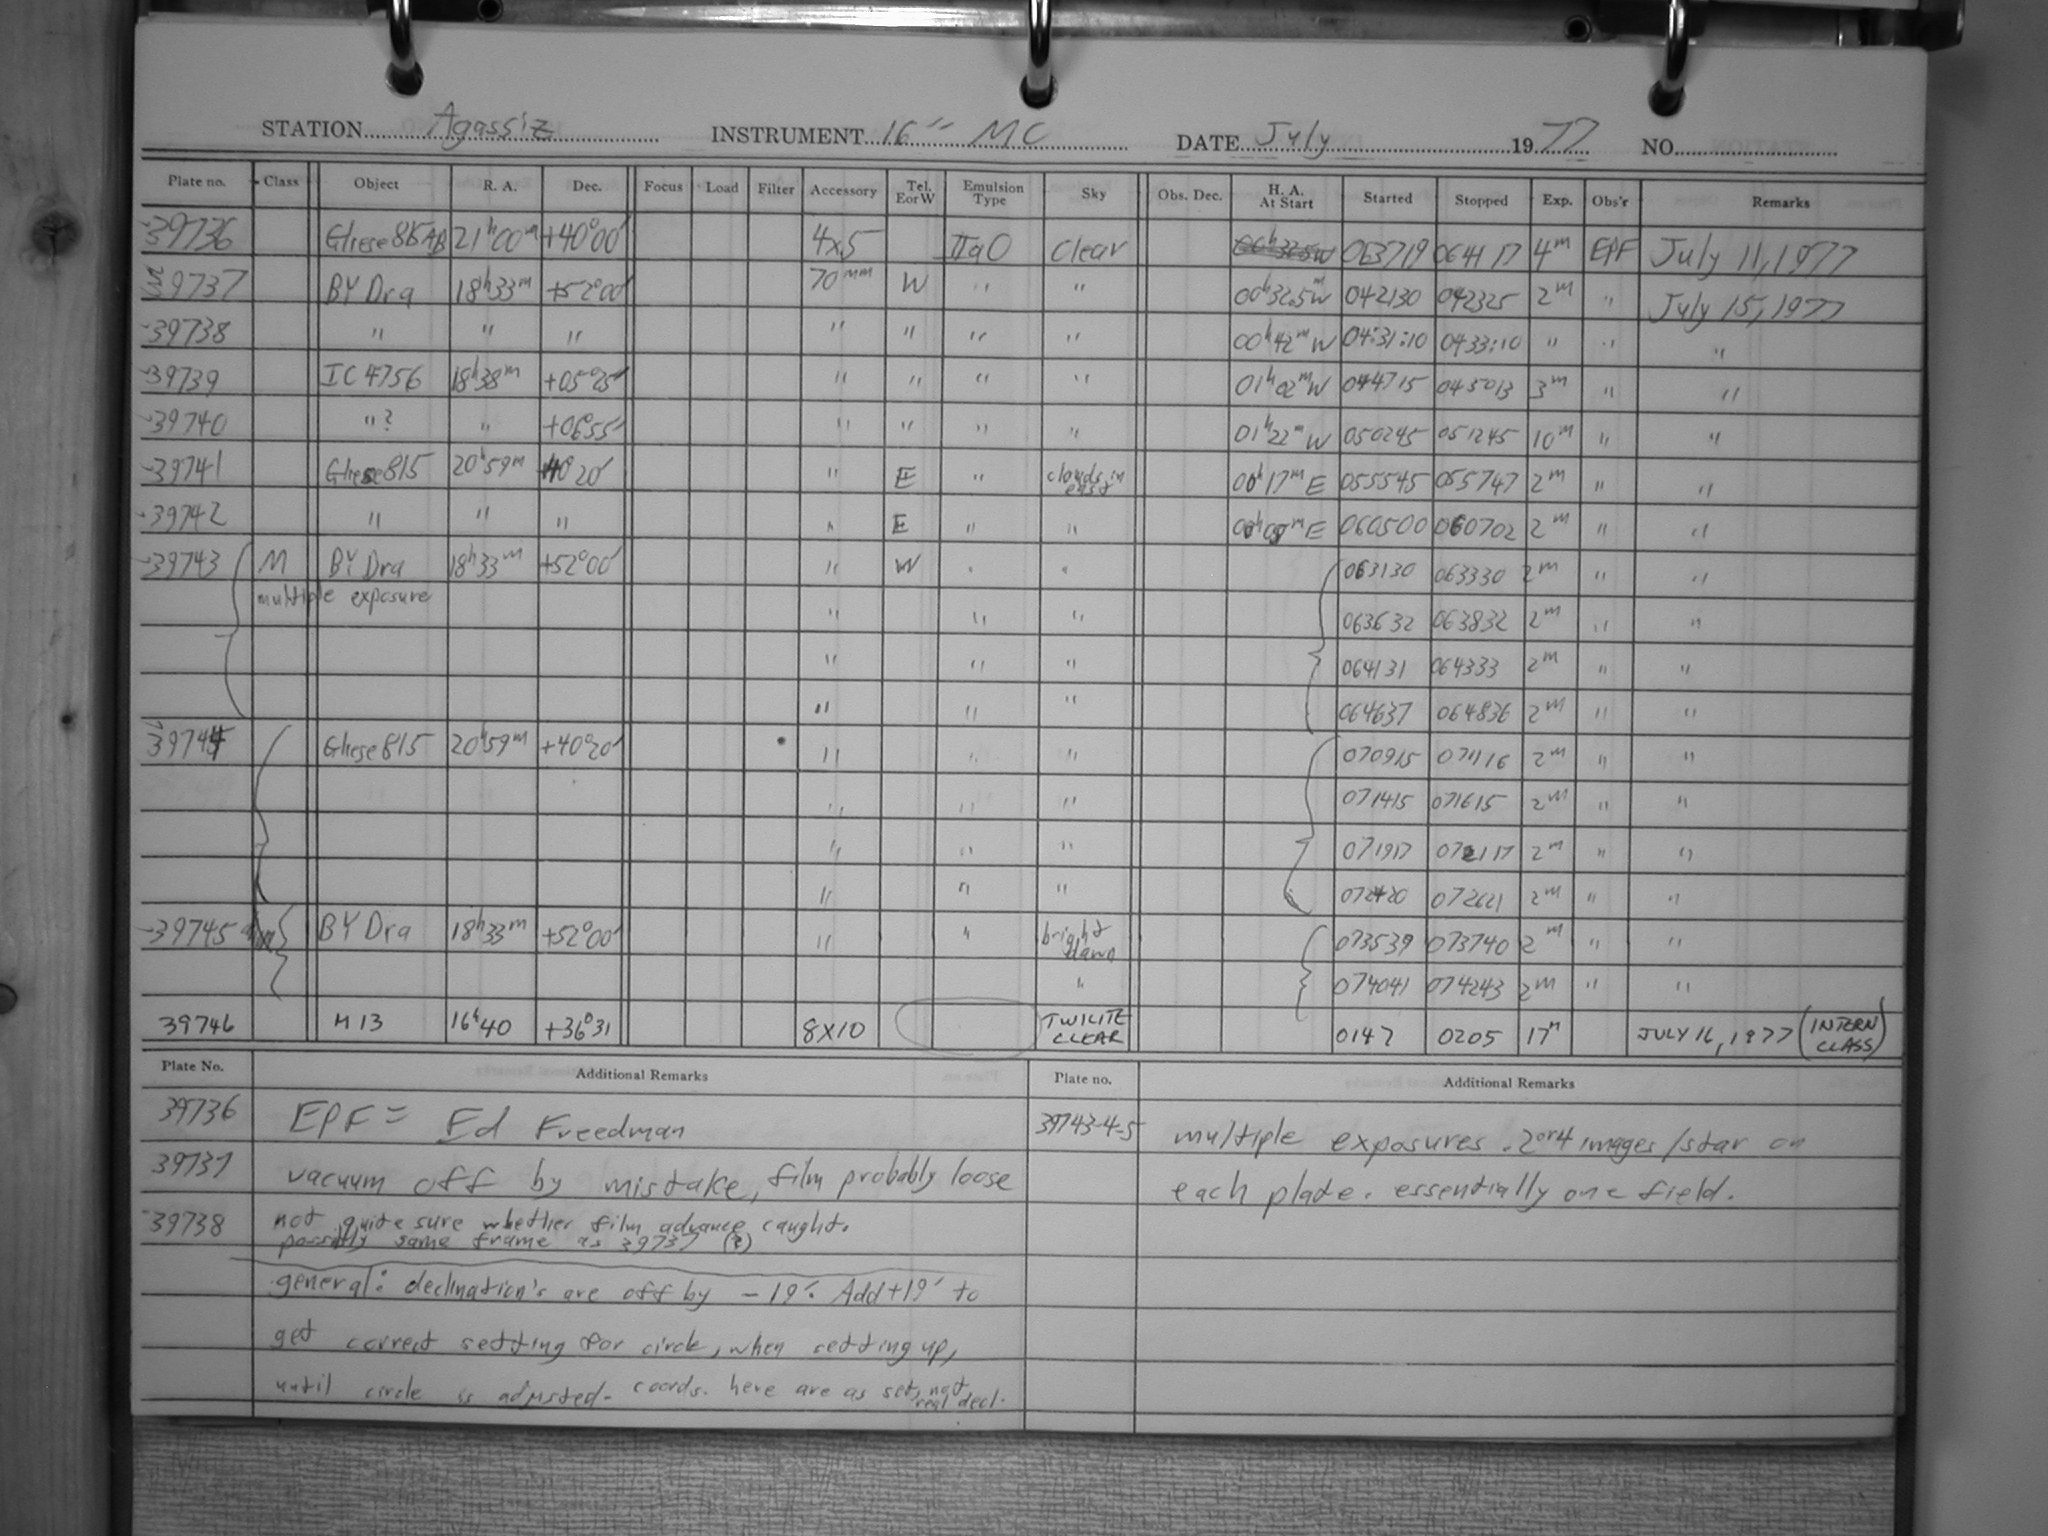 STATION Agassiz INSTRUMENT 16" MC DATE July 1977 NO.
Plate no. Class Object R. A. Dec. Focus Load Filter Accessory Tel. E or W Emulsion Type Sky Obs. Dec. H. A. At Start Started Stopped Exp. Obs'r Remarks
39736 Gliese 815 AB 21h00m +40°00' 4x5 IIaO Clear 063719 064117 4m EPF July 11, 1977
39737 BY Dra 18h33m +52°00' 70mm W " " 00h32.5mW 042130 042325 2m " July 15, 1977
39738 " " " " " " " 00h42mW 04:31:10 0433:10 " " "
39739 IC 4756 18h38m +05°25' " " " " 01h02mW 044715 045013 3m " "
39740 " ? " +06°55' " " " " 01h22mW 050245 051245 10m " "
39741 Gliese 815 20h59m +40°20' " E " clouds in east 00h17mE 055545 055747 2m " "
39742 " " " " E " " 060500 060702 2m " "
39743 M BY Dra 18h33m +52°00' " W " " 063130 063330 2m " "
multiple exposure " " " 063632 063832 2m " "
" " " 064131 064333 2m " "
" " " 064637 064836 2m " "
39744 Gliese 815 20h59m +40°20' " " " 070915 071116 2m " "
" " " 071415 071615 2m " "
" " " 071917 072117 2m " "
" " " 072420 072621 2m " "
39745 BY Dra 18h33m +52°00' " " bright dawn 073539 073740 2m " "
" 074041 074243 2m " "
39746 M13 16h40 +36°31 8X10 TWILITE CLEAR 0147 0205 17m JULY 16, 1977 (INTERN CLASS)
Plate No. Additional Remarks Plate no. Additional Remarks
39736 EPF = Ed Freedman 39743-4-5 multiple exposures. 2 or 4 images/star on
39737 vacuum off by mistake, film probably loose each plate. essentially one field.
39738 not quite sure whether film advance caught.
possibly same frame as 39737 (?)
general: declination's are off by -19'. Add +19' to
get correct setting for circle, when setting up,
until circle is adjusted. coords. here are as set, not real decl.